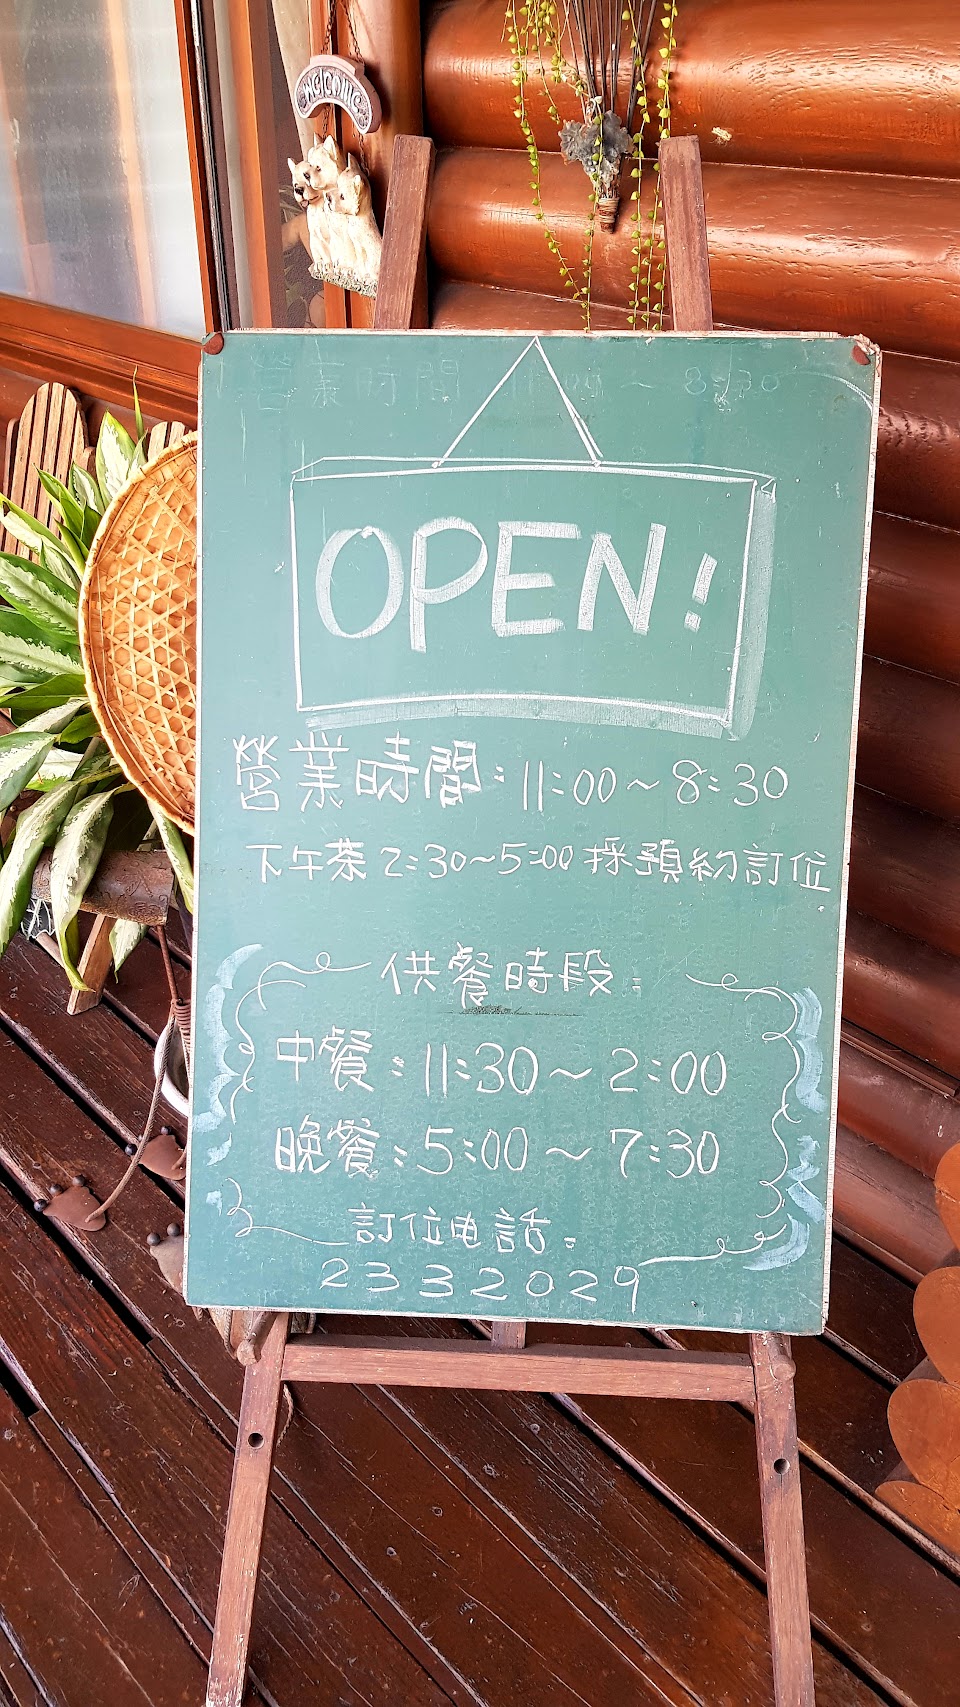 welcome
營業時間 11:00 ~ 8:30
OPEN!
營業時間:11:00~8:30
下午茶 2:30~5:00 採預約訂位
供餐時段:
中餐:11:30~2:00
晚餐:5:00~7:30
訂位电話:
2332029